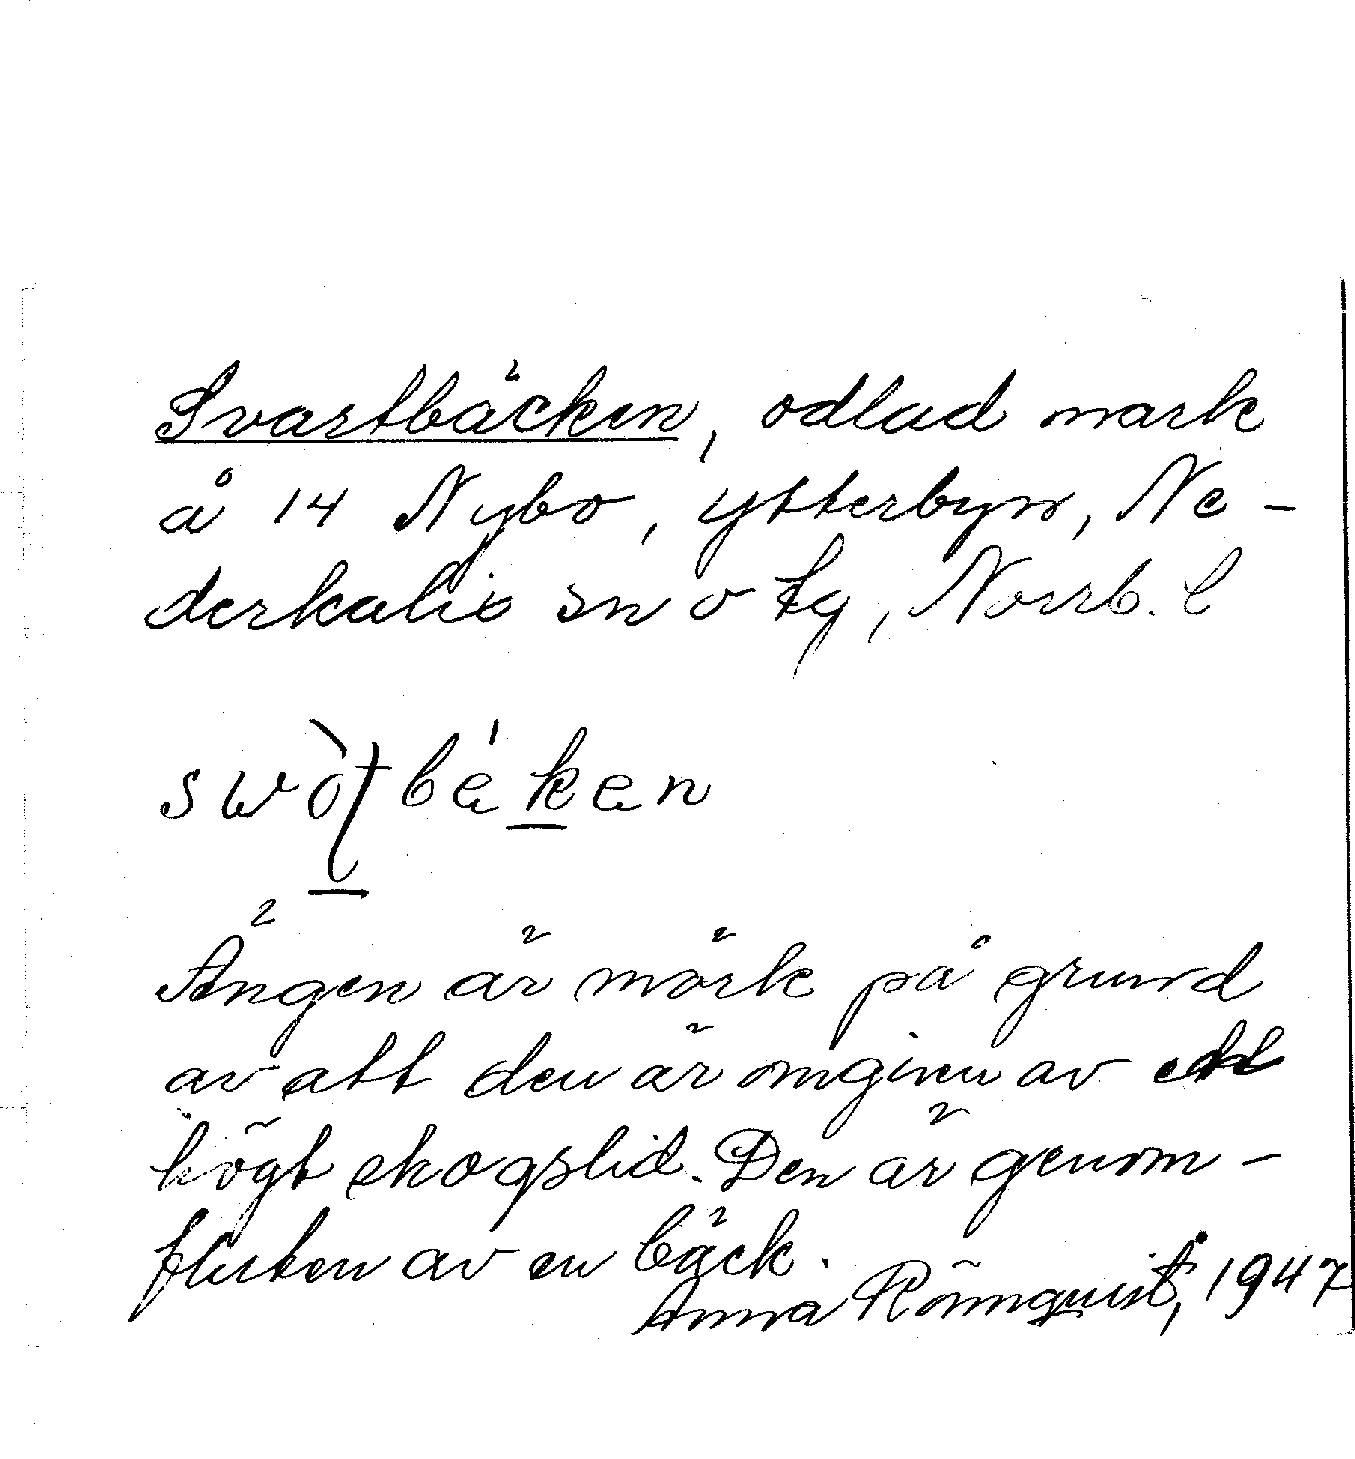 Svartbäcken, odlad mark
å 14 Nybo, Ytterbyn, Ne-
derkalix sn o tg, Norrb. l
Ängen är mörk på grund
av att den är omgiven av ett
högt skogslid. Den är genom-
fluten av en bäck.
Anna Rönnquist, 1947